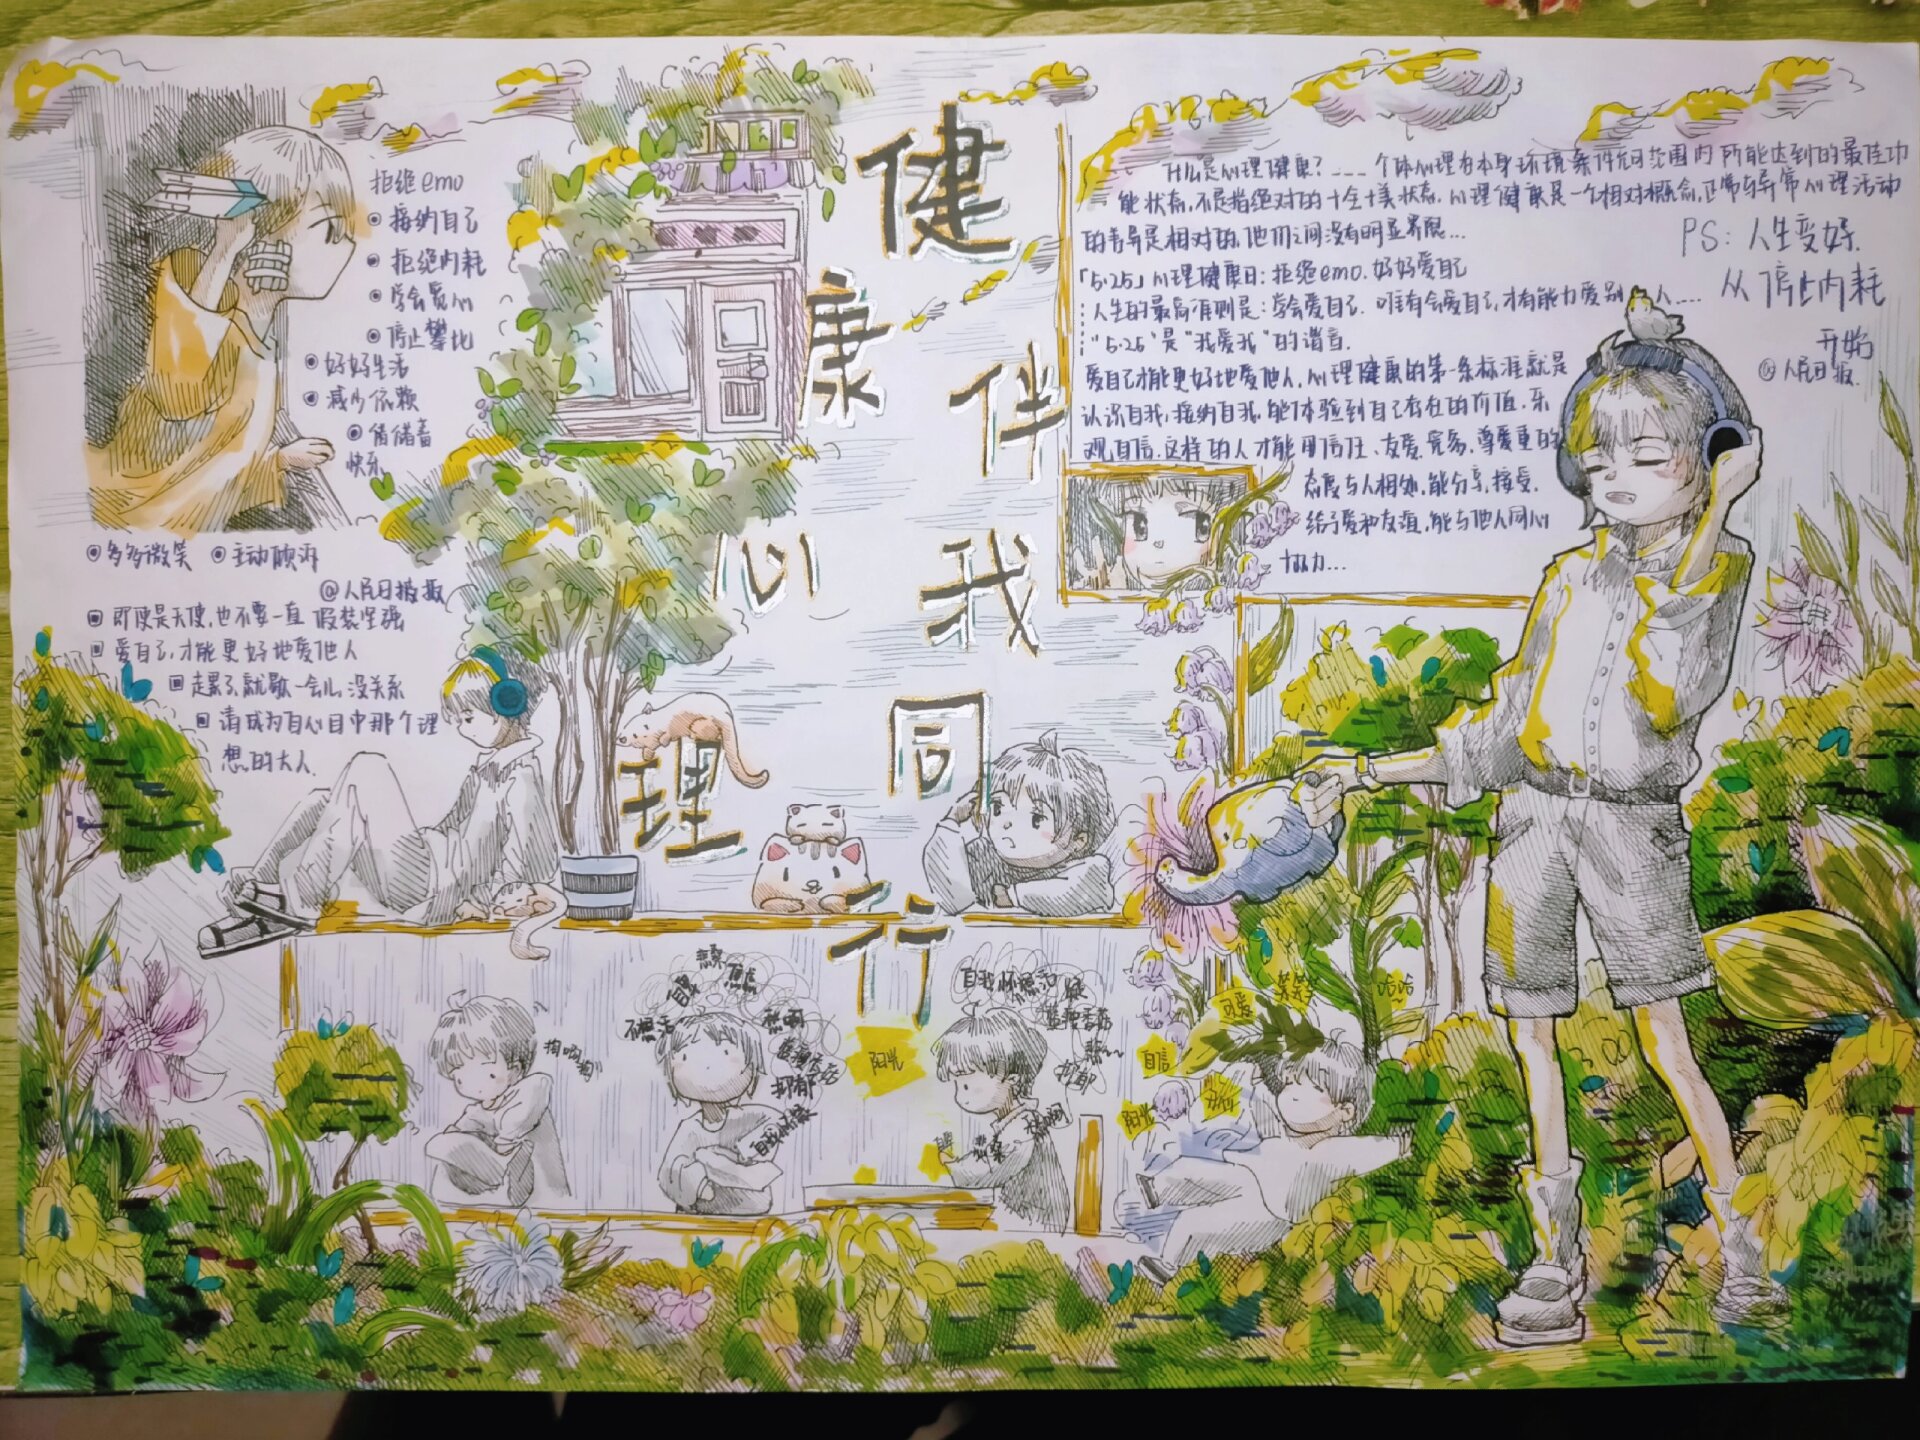 心理健康伴我同行
拒绝emo
接纳自己
拒绝内耗
学会宽心
停止攀比
好好生活
减少依赖
储蓄
快乐
多多微笑
主动倾诉
@人民日报
即使是天使,也不要一直假装坚强
爱自己,才能更好地爱他人
走累了,就歇一会儿,没关系
请成为自己心目中那个理
想的大人.
什么是心理健康?....个体心理在本身环境条件许可范围内所能达到的最佳功
能状态,不是指绝对的十全十美状态.心理健康是一个相对概念,正常与异常心理活动
的差异是相对的,他们之间没有明显界限...
「5.25」心理健康日:拒绝emo.好好爱自己
人生的最高准则是:学会爱自己.唯有会爱自己,才有能力爱别人....
"5.25"是"我爱我"的谐音.
爱自己才能更好地爱他人,心理健康的第一条标准就是
认识自我,接纳自我,能体验到自己存在的价值.乐
观自信.这样的人才能用信任、友爱、宽容、尊重的
态度与人相处,能分享,接受.
给予爱和友谊,能与他人同心
协力...
PS:人生变好.
从停止内耗
开始
@人民日报.
焦虑
自卑
阳光
自我怀疑
抑郁
可爱
笑笑
自信
阳光